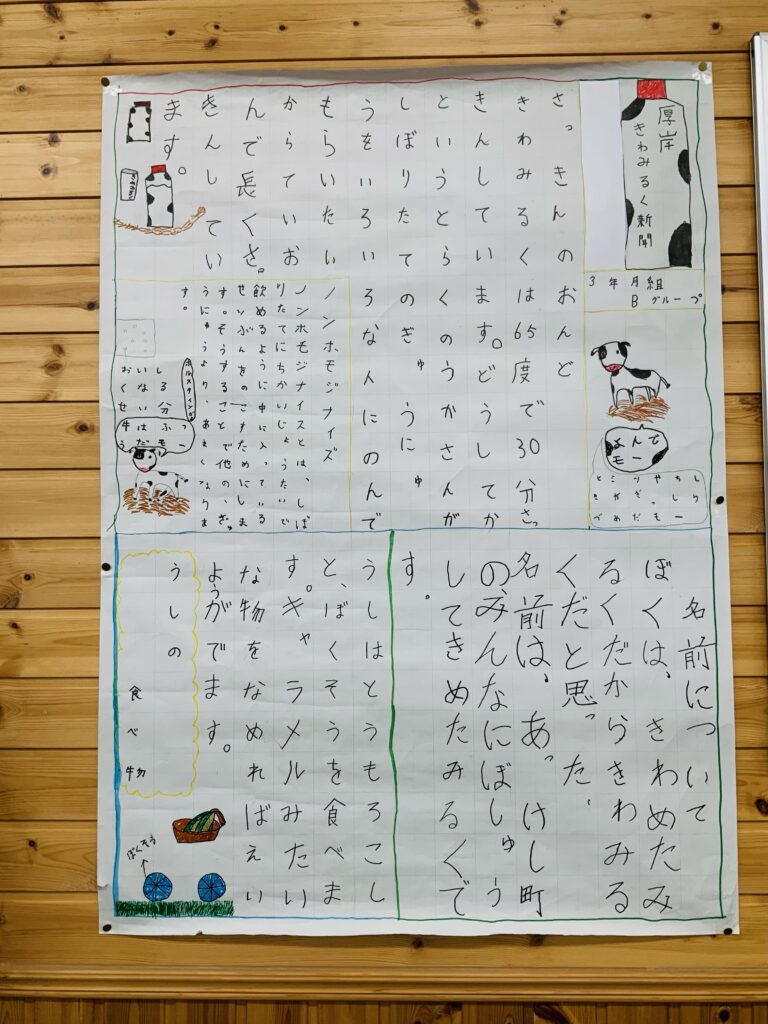 厚岸
きわみるく新聞
3年月組
Bグループ
よんで
モー
さっきんのおんど
きわみるくは65度で30分さっ
きんしています。どうしてか
というとらくのうかさんが
しぼりたてのぎゅうにゅ
うをいろいろな人にのんで
もらいたい
からていお
んで長くさ。
きんしてい
ます。
ノンホモジナイズ
ノンホモジナイスとは、しぼ
りたてにちかいじょうたいで
飲めるように中に入っている
せいぶんをのこすためにしま
す。そうすることで他の、ぎゅ
うにゅうより、あまくなりま
す。
おいし
くなる
せい分
名前について
ぼくは、きわめたみ
るくだからきわみる
くだと思った。
名前は、あっけし町
のみんなにぼしゅう
してきめたみるくで
す。
うしはとうもろこし
と、ぼくそうを食べま
す。キャラメルみたい
な物をなめればえい
ようがでます。
うしの食べ物
ぼくそう